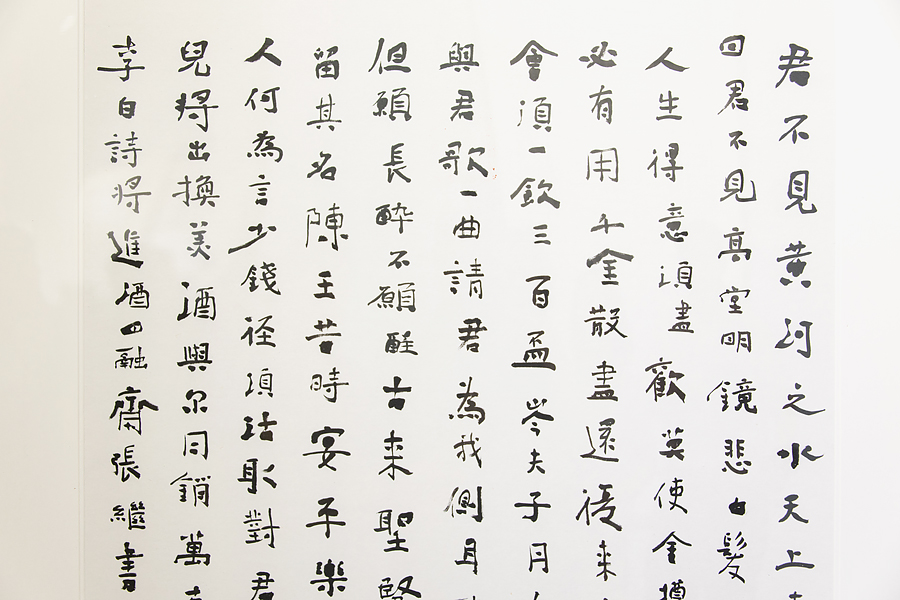 君不見黃河之水天上
回君不見高堂明鏡悲白髮
人生得意須盡歡莫使金樽
必有用千金散盡還復來
會須一飲三百盃岑夫子丹
與君歌一曲請君為我側耳
但願長醉不願醒古來聖賢
留其名陳王昔時宴平樂
人何為言少錢徑須沽取對君
兒將出換美酒與尔同銷萬古
李白詩將進酒四融齋張繼書